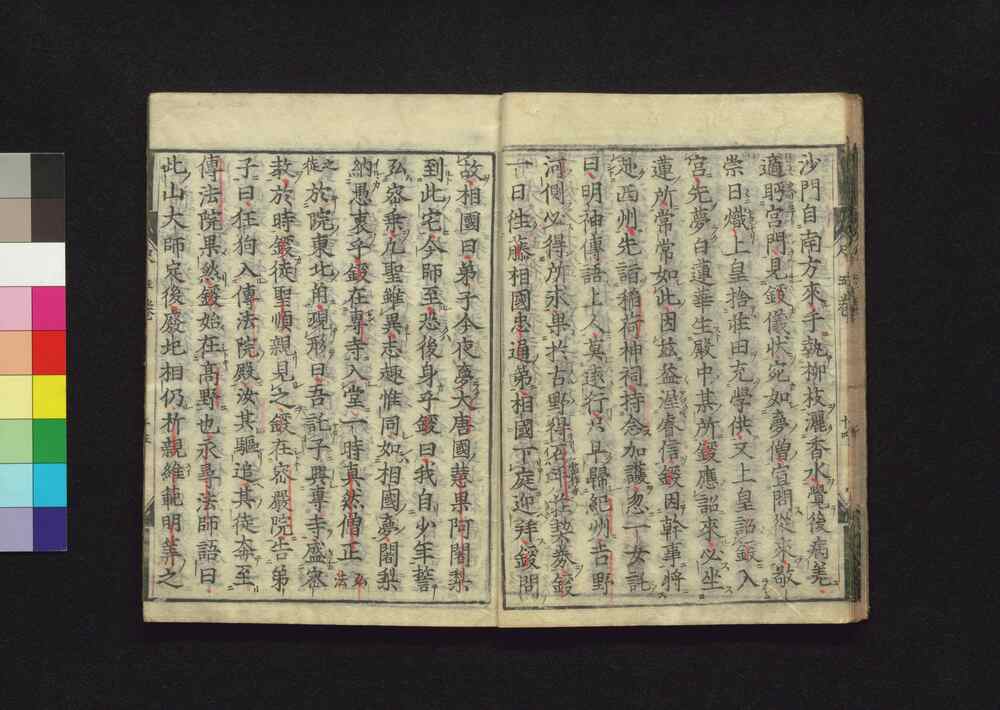 沙門自南方來手執柳枝灑香水覺後病差
適眄宮門見鑁儀狀宛如夢僧宜問從來敬
崇日熾上皇捨莊田充學供又上皇詔鑁入
宮先夢白蓮華生殿中某所鑁應詔來必坐
蓮所常常如此因茲益渥睿信鑁因幹事將
赴西州先詣稻荷神祠持念加護忽一女託
曰明神傳語上人莫遠行只早歸紀州吉野
河側必得所求果於古野得莊契券鑁
一日往藤相國忠通第相國下庭迎拜鑁問
故相國曰弟子今夜夢大唐國慧果阿闍梨
到此宅今師至恐後身乎鑁曰我自少年誓
弘密乘凡聖雖異志趣惟同如相國夢闍梨
納愚衷乎鑁在專寺入堂一時真然僧正弘法
之徒於院東北角現形曰吾託子興專寺盛密
教於時鑁徒聖順親見之鑁在密嚴院告弟
子曰狂狗入傳法院殿汝其驅追其徒奔至
傳法院果然鑁始在高野也永尋法師語曰
此山大師定後廢圯相仍祈親維範明筭之